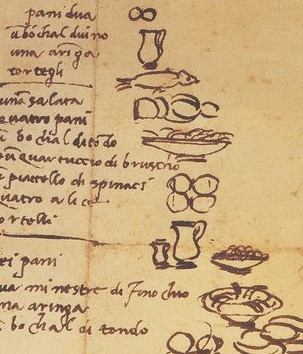 pani dua
u bochal di vino
una aringa
tortegli
una salata
quatro pani
bochal di tondo
un quartuccio di bruscho
piattello di spinaci
quatro alice
ortelli
ei pani
ua minestre di finochio
na aringa
bochal di tondo